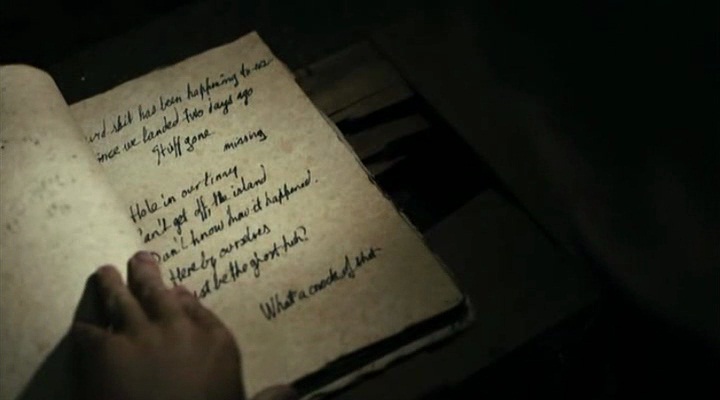 shit has been happening to us
since we landed two days ago
Stuff gone missing
Hole in our tinny
can't get off the island
Don't know how it happened.
Here by ourselves
must be the ghost huh?
What a crock of shit